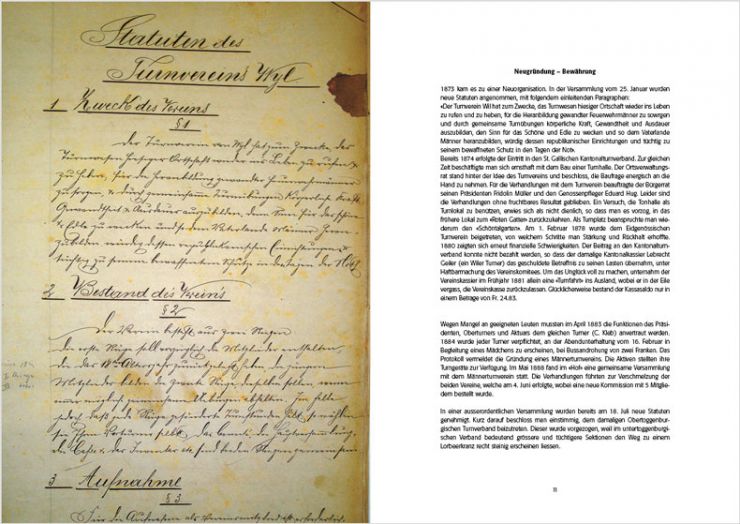 Statuten des
Turnvereins Wyl
1 Zweck des Vereins
§ 1
Der Turnverein von Wyl hat zum Zwecke, das
Turnwesen hiesiger Ortschaft wieder ins Leben zu rufen &
zu heben, für die Heranbildung gewandter Feuerwehrmänner
zu sorgen & durch gemeinsame Turnübungen körperliche Kraft,
Gewandtheit & Ausdauer auszubilden, den Sinn für das Schöne
& Edle zu wecken und so dem Vaterlande Männer heran-
zubilden, würdig dessen republikanischen Einrichtungen &
tüchtig zu seinem bewaffneten Schutz in den Tagen der Noth.
2 Bestand des Vereins
§ 2
Der Verein besteht aus zwei Riegen
die erste Riege soll
Mitglieder
3 Aufnahme
§ 3
Für die Aufnahme als Vereinsmitglied ist erforderlich
Neugründung – Bewährung
1873 kam es zu einer Neuorganisation. In der Versammlung vom 25. Januar wurden
neue Statuten angenommen, mit folgendem einleitenden Paragraphen:
«Der Turnverein Wil hat zum Zwecke, das Turnwesen hiesiger Ortschaft wieder ins Leben
zu rufen und zu heben, für die Heranbildung gewandter Feuerwehrmänner zu sorgen
und durch gemeinsame Turnübungen körperliche Kraft, Gewandtheit und Ausdauer
auszubilden, den Sinn für das Schöne und Edle zu wecken und so dem Vaterland
Männer heranzubilden, würdig dessen republikanischen Einrichtungen und tüchtig zu
seinem bewaffneten Schutz in den Tagen der Not».
Bereits 1874 erfolgte der Eintritt in den St. Gallischen Kantonalturnverband. Zur gleichen
Zeit beschäftigte man sich ernsthaft mit dem Bau einer Turnhalle. Der Ortsverwaltungs-
rat stand hinter der Idee des Turnvereins und beschloss, die Baufrage energisch an die
Hand zu nehmen. Für die Verhandlungen mit dem Turnverein beauftragte der Bürgerrat
seinen Präsidenten Fridolin Müller und den Genossenpfleger Eduard Hug. Leider sind
die Verhandlungen ohne fruchtbares Resultat geblieben. Ein Versuch, die Tonhalle als
Turnlokal zu benützen, erwies sich als nicht dienlich, so dass man es vorzog, in das
frühere Lokal zum «Roten Gatter» zurückzukehren. Als Turnplatz beanspruchte man wie-
derum den «Schöntalgarten». Am 1. Februar 1878 wurde dem Eidgenössischen
Turnverein beigetreten, von welchem Schritte man Stärkung und Rückhalt erhoffte.
1880 zeigten sich erneut finanzielle Schwierigkeiten. Der Beitrag an den Kantonalturn-
verband konnte nicht bezahlt werden, so dass der damalige Kantonalkassier Lebrecht
Geiler (ein Wiler Turner) das geschuldete Betreffnis zu seinen Lasten übernahm, unter
Haftbarmachung des Vereinskomitees. Um das Unglück voll zu machen, unternahm der
Vereinskassier im Frühjahr 1881 allein eine «Turnfahrt» ins Ausland, wobei er in der Eile
vergass, die Vereinskasse zurückzulassen. Glücklicherweise bestand der Kassasaldo nur in
einem Betrage von Fr. 24.83.
Wegen Mangel an geeigneten Leuten mussten im April 1883 die Funktionen des Präsi-
denten, Oberturners und Aktuars dem gleichen Turner (C. Kleb) anvertraut werden.
1884 wurde jeder Turner verpflichtet, an der Abendunterhaltung vom 16. Februar in
Begleitung eines Mädchens zu erscheinen, bei Bussandrohung von zwei Franken. Das
Protokoll vermeldet die Gründung eines Männerturnvereins. Die Aktiven stellten ihre
Turngeräte zur Verfügung. Im Mai 1888 fand im «Hof» eine gemeinsame Versammlung
mit dem Männerturnverein statt. Die Verhandlungen führten zur Verschmelzung der
beiden Vereine, welche am 4. Juni erfolgte, wobei eine neue Kommission mit 5 Mitglie-
dern bestellt wurde.
In einer ausserordentlichen Versammlung wurden bereits am 18. Juli neue Statuten
genehmigt. Kurz darauf beschloss man einstimmig, dem damaligen Obertoggenbur-
gischen Turnverband beizutreten. Dieser wurde vorgezogen, weil im untertoggenburgi-
schen Verband bedeutend grössere und tüchtigere Sektionen den Weg zu einem
Lorbeerkranz recht steinig erscheinen liessen.